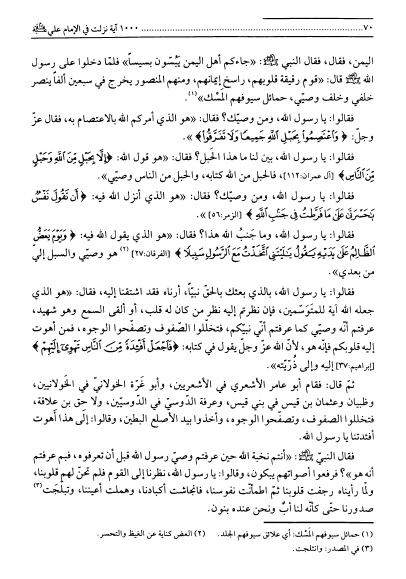 ٧٠ ........ ١٠٠٠ آية نزلت في الإمام علي ﷺ
اليمن، فقال، فقال النبي ﷺ: «جاءكم أهل اليمن يبسّون بسيساً» فلمّا دخلوا على رسول
الله ﷺ قال: «قوم رقيقة قلوبهم، راسخ إيمانهم، ومنهم المنصور يخرج في سبعين ألفاً ينصر
خلفي وخلف وصيّي، حمائل سيوفهم المَسْك»(١).
فقالوا: يا رسول الله، ومن وصيّك؟ فقال: «هو الذي أمركم الله بالاعتصام به، فقال عزّ
وجلّ: ﴿وَاعْتَصِمُوا بِحَبْلِ اللَّهِ جَمِيعًا وَلَا تَفَرَّقُوا﴾».
فقالوا: يا رسول الله، بين لنا ما هذا الحبل؟ فقال: «هو قول الله: ﴿إِلَّا بِحَبْلٍ مِنَ اللَّهِ وَحَبْلٍ
مِنَ النَّاسِ﴾ [آل عمران:١١٢]، فالحبل من الله كتابه، والحبل من الناس وصيّي».
فقالوا: يا رسول الله، ومن وصيّك؟ فقال: «هو الذي أنزل الله فيه: ﴿أَن تَقُولَ نَفْسٌ
يَا حَسْرَتَى عَلَى مَا فَرَّطتُ فِي جَنبِ اللَّهِ﴾ [الزمر:٥٦]».
فقالوا: يا رسول الله، وما جَنبُ الله هذا؟ فقال: «هو الذي يقول الله فيه: ﴿وَيَوْمَ يَعَضُّ
الظَّالِمُ عَلَى يَدَيْهِ يَقُولُ يَا لَيْتَنِي اتَّخَذْتُ مَعَ الرَّسُولِ سَبِيلًا﴾ [الفرقان:٢٧](٢) هو وصيّي والسبل إلي
من بعدي».
فقالوا: يا رسول الله، بالذي بعثك بالحقّ نبيّاً، أرناه فقد اشتقنا إليه، فقال: «هو الذي
جعله الله آية للمتوسّمين، فإن نظرتم إليه نظر من كان له قلب، أو ألقى السمع وهو شهيد،
عرفتم أنّه وصيّي كما عرفتم أنّي نبيّكم، فتخلّلوا الصّفوف وتصفّحوا الوجوه، فمن أهوت
إليه قلوبكم فإنّه هو، لأنّ الله عزّ وجلّ يقول في كتابه: ﴿فَاجْعَلْ أَفْئِدَةً مِنَ النَّاسِ تَهْوِي إِلَيْهِمْ﴾
[إبراهيم:٣٧] إليه وإلى ذُرّيّته».
ثمّ قال: فقام أبو عامر الأشعري في الأشعريين، وأبو غَرّة الخولانيّ في الخولانيين،
وظبيان وعثمان بن قيس في بني قيس، وعرفة الدّوسي في الدّوسيّين، ولا حق بن علاقة،
فتخللوا الصفوف، وتصفّحوا الوجوه، وأخذوا بيد الأصلع البطين، وقالوا: إلى هذا أهوت
أفئدتنا يا رسول الله.
فقال النبيّ ﷺ: «أنتم نخبة الله حين عرفتم وصيّ رسول الله قبل أن تعرفوه، فبم عرفتم
أنه هو»؟ فرفعوا أصواتهم يبكون، وقالوا: يا رسول الله، نظرنا إلى القوم فلم تحنّ لهم قلوبنا،
ولمّا رأيناه رجفت قلوبنا ثمّ اطمأنّت نفوسنا، فانجاشت أكبادنا، وهملت أعيننا، وتبلّجت(٣)
صدورنا حتّى كأنّه لنا أبٌ ونحن عنده بنون.
(١) حمائل سيوفهم المَسْك: أي علائق سيوفهم الجلد. (٢) العض كناية عن الغيظ والتحسر.
(٣) في المصدر: وانثلجت.